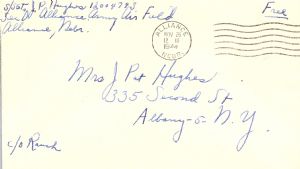 S/Sgt. J. P. Hughes 12004793
Sec D Alliance Army Air Field
Alliance, Nebr.
Free
ALLIANCE
NOV 28
12 M
1944
NEBR.
Mrs J Pat Hughes
335 Second St
Albany-5- N.Y.
c/o Ranch